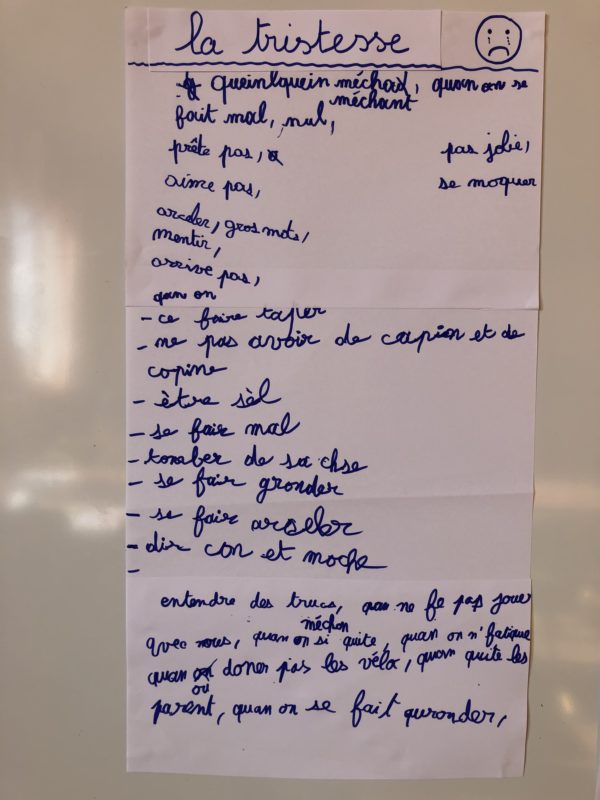 la tristesse
queinlquein méchant, quan on se
méchant
fait mal, nul,
prête pas, pas jolie,
aime pas, se moquer
arceler, gros mots,
mentir,
arrive pas,
quan on
- ce faire taper
- ne pas avoir de copion et de
copine
- ètre sèl
- se fair mal
- tomber de sa chse
- se fair gronder
- se fair arseler
- dir con et moche
-
entendre des trucs, ne fe pas jouer
méchon
avec nous, quan on si quite, quan on n'fatique
quan doner pas les vélo, quan quite les
ou
parent, quan on se fait guronder,